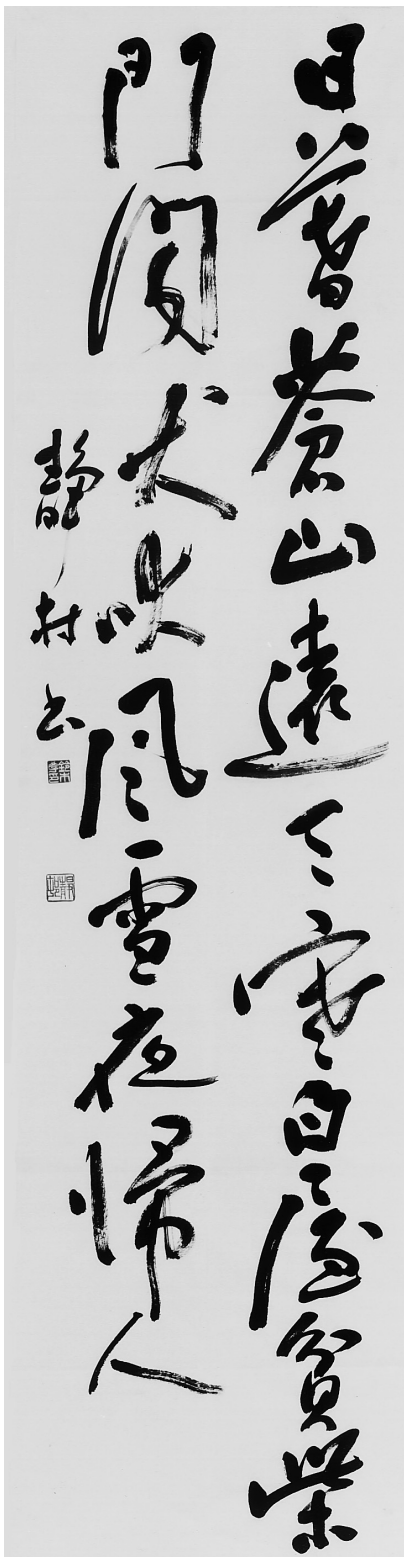 日暮蒼山遠天寒白屋貧柴
門聞犬吠風雪夜帰人
静村書